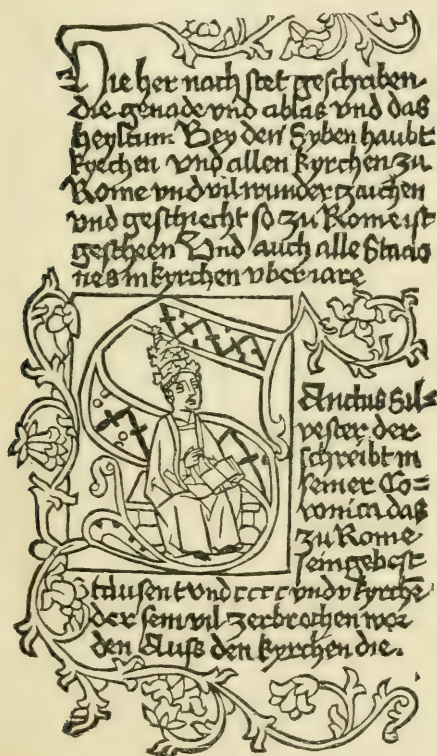 Hie her nach stet geschriben
die genade vnd ablas vnd das
heyltum. Bey den Syben haubt
kyrchen vnd allen kyrchen zu
Rome vnd vil wunderzaichen
vnd geschiecht so zu Rome ist
gescheen Vnd auch alle Stacio
nes in kyrchen vber iare
Sanctus Sil-
vester der
schreibt in
seiner Co=
ronica das
zu Rome
sein gebest
tausent vnd cccc vnd v kyrchē
der sein vil zerbrochen wor
den Auss den kyrchen die.